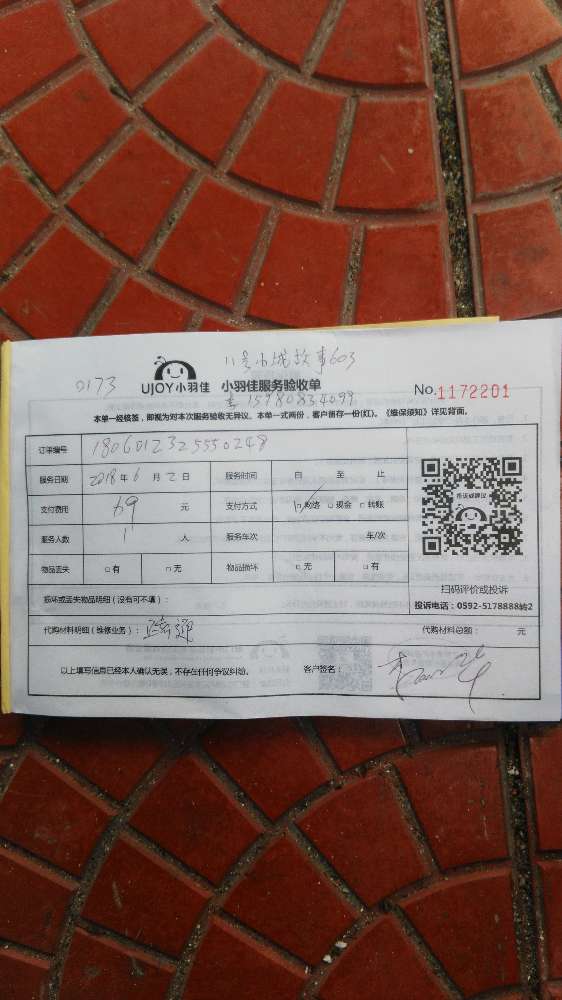 11号小城故事603
0173
UJOY小羽佳 小羽佳服务验收单
No.1172201
15980834099
本单一经核签，即视为对本次服务验收无异议。本单一式两份，客户留存一份(红)。《维保须知》详见背面。
订单编号 1806012325550248
服务日期 2018年6月2日 服务时间 自 至 止
支付费用 69 元 支付方式 □网络 □现金 □转账
服务人数 1 人 服务车次 车/次
物品丢失 □有 □无 物品损坏 □无 □有
投诉或建议
扫码评价或投诉
投诉电话：0592-5178888转2
损坏或丢失物品明细（没有可不填）：
代购材料明细（维修业务）： 代购材料总额： 元
以上填写信息已经本人确认无误，不存在任何争议纠纷。 客户签名：